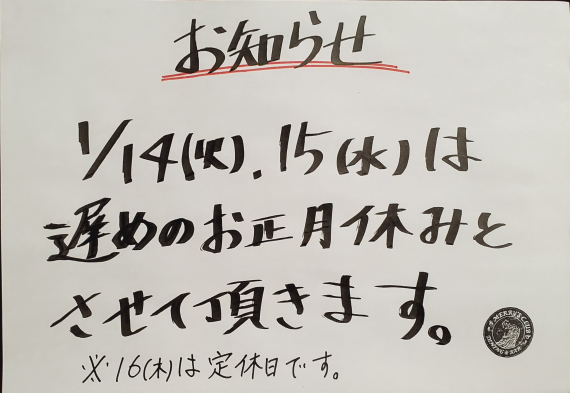 お知らせ
1/14(火).15(水)は
遅めのお正月休みと
させて頂きます。
※16(木)は定休日です。
MERRY'S CLUB